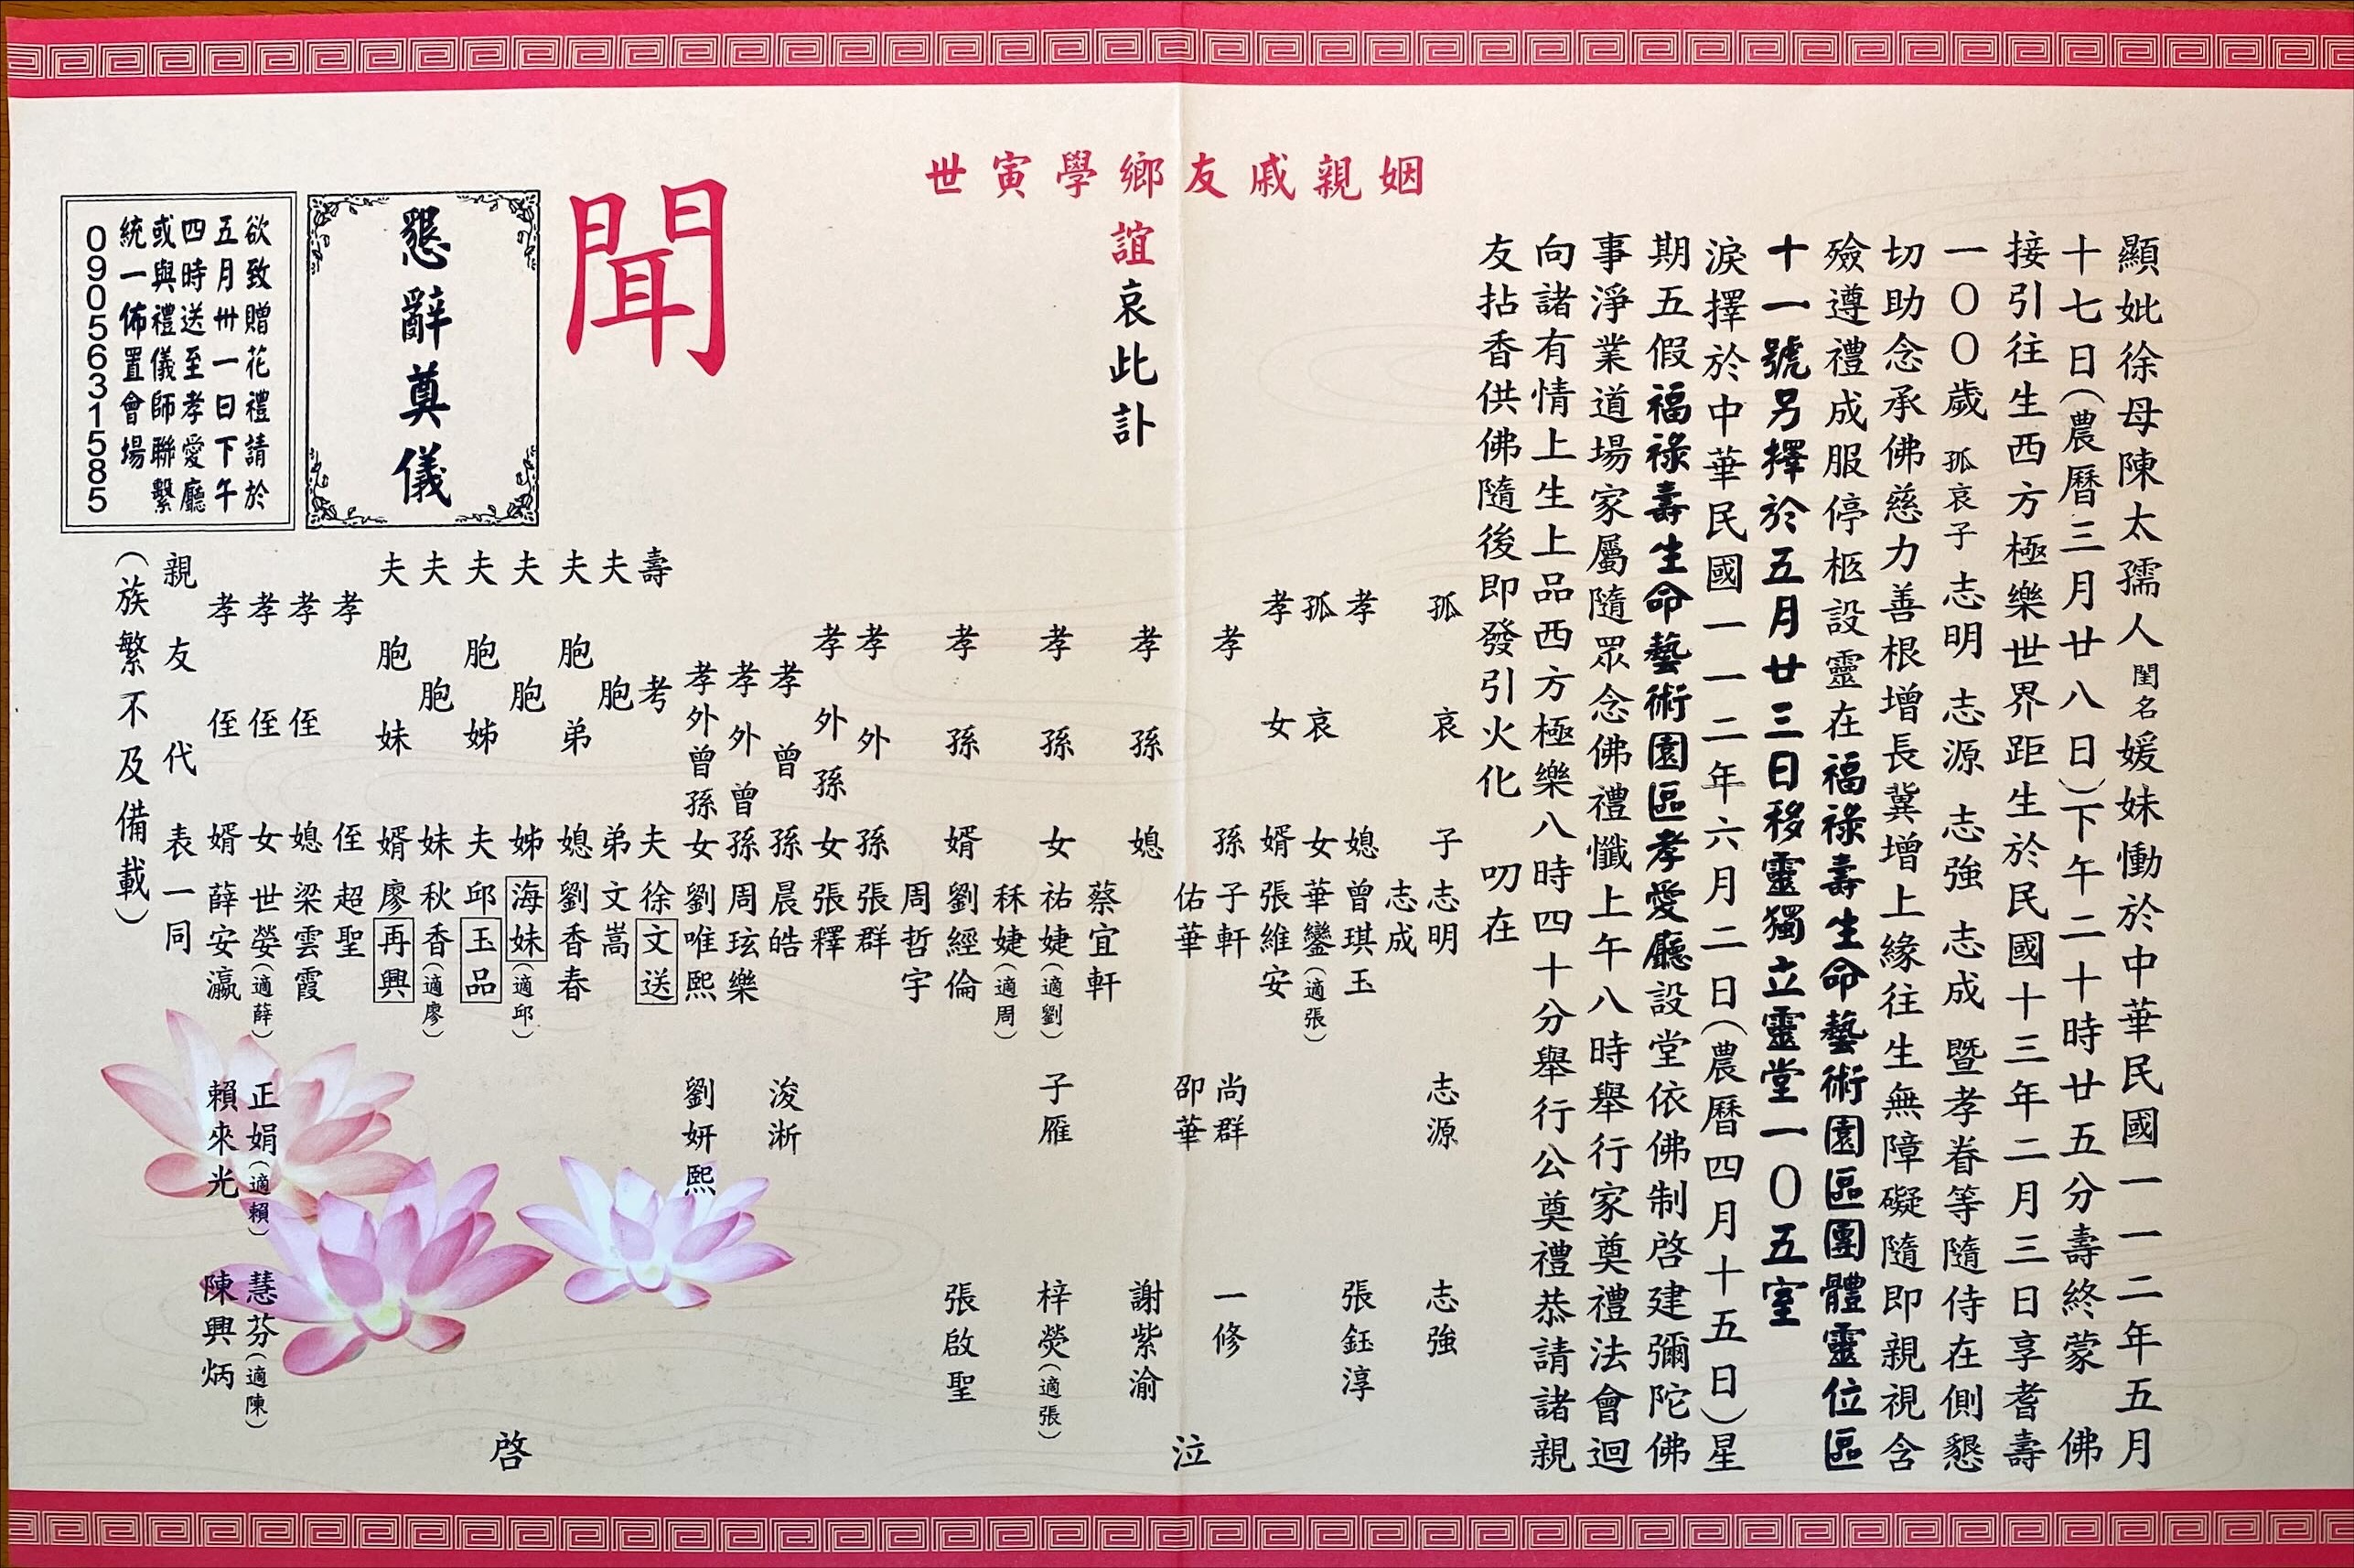 顯妣徐母陳太孺人閨名媛妹慟於中華民國一一二年五月
十七日(農曆三月廿八日)下午二十時廿五分壽終蒙 佛
接引往生西方極樂世界距生於民國十三年二月三日享耆壽
一〇〇歲孤哀子志明 志源 志強 志成 暨孝眷等隨侍在側懇
切助念承佛慈力善根增長冀增上緣往生無障礙隨即親視含
殮遵禮成服停柩設靈在福祿壽生命藝術園區團體靈位區
十一號另擇於五月廿三日移靈獨立靈堂一〇五室
淚擇於中華民國一一二年六月二日(農曆四月十五日)星
期五假福祿壽生命藝術園區孝愛廳設堂依佛制啓建彌陀佛
事淨業道場家屬隨眾念佛禮懺上午八時舉行家奠禮法會迴
向諸有情上生上品西方極樂八時四十分舉行公奠禮恭請諸親
友拈香供佛隨後即發引火化 叨在
姻親戚友鄉學寅世
誼哀此訃
聞
孤哀子 志明 志源 志強
志成
孝媳 曾琪玉 張鈺淳
孤哀女 華鑾(適張)
孝女婿 張維安
孝孫 子軒 尚群 一修
佑華 邵華 泣
孝孫媳 謝紫渝
蔡宜軒
孝孫女 祐婕(適劉) 子雁 梓熒(適張)
秝婕(適周)
孝孫婿 劉經倫 張啟聖
周哲宇
孝外孫 張群
孝外孫女 張釋
孝曾孫 晨皓 浚淅
孝外曾孫 周玹樂
孝外曾孫女 劉唯熙 劉妍熙
壽考夫 徐文送
夫胞弟 文嵩
夫胞弟媳 劉香春
夫胞姊 海妹(適邱) 啓
夫胞姊夫 邱玉品
夫胞妹 秋香(適廖)
夫胞妹婿 廖再興
孝侄 超聖
孝侄媳 梁雲霞
孝侄女 世嫈(適薛) 正娟(適賴) 慧芬(適陳)
孝侄婿 薛安瀛 賴來光 陳興炳
親友代表一同
(族繁不及備載)
懇辭奠儀
欲致贈花禮請於
五月卅一日下午
四時送至孝愛廳
或與禮儀師聯繫
統一佈置會場
0905631585